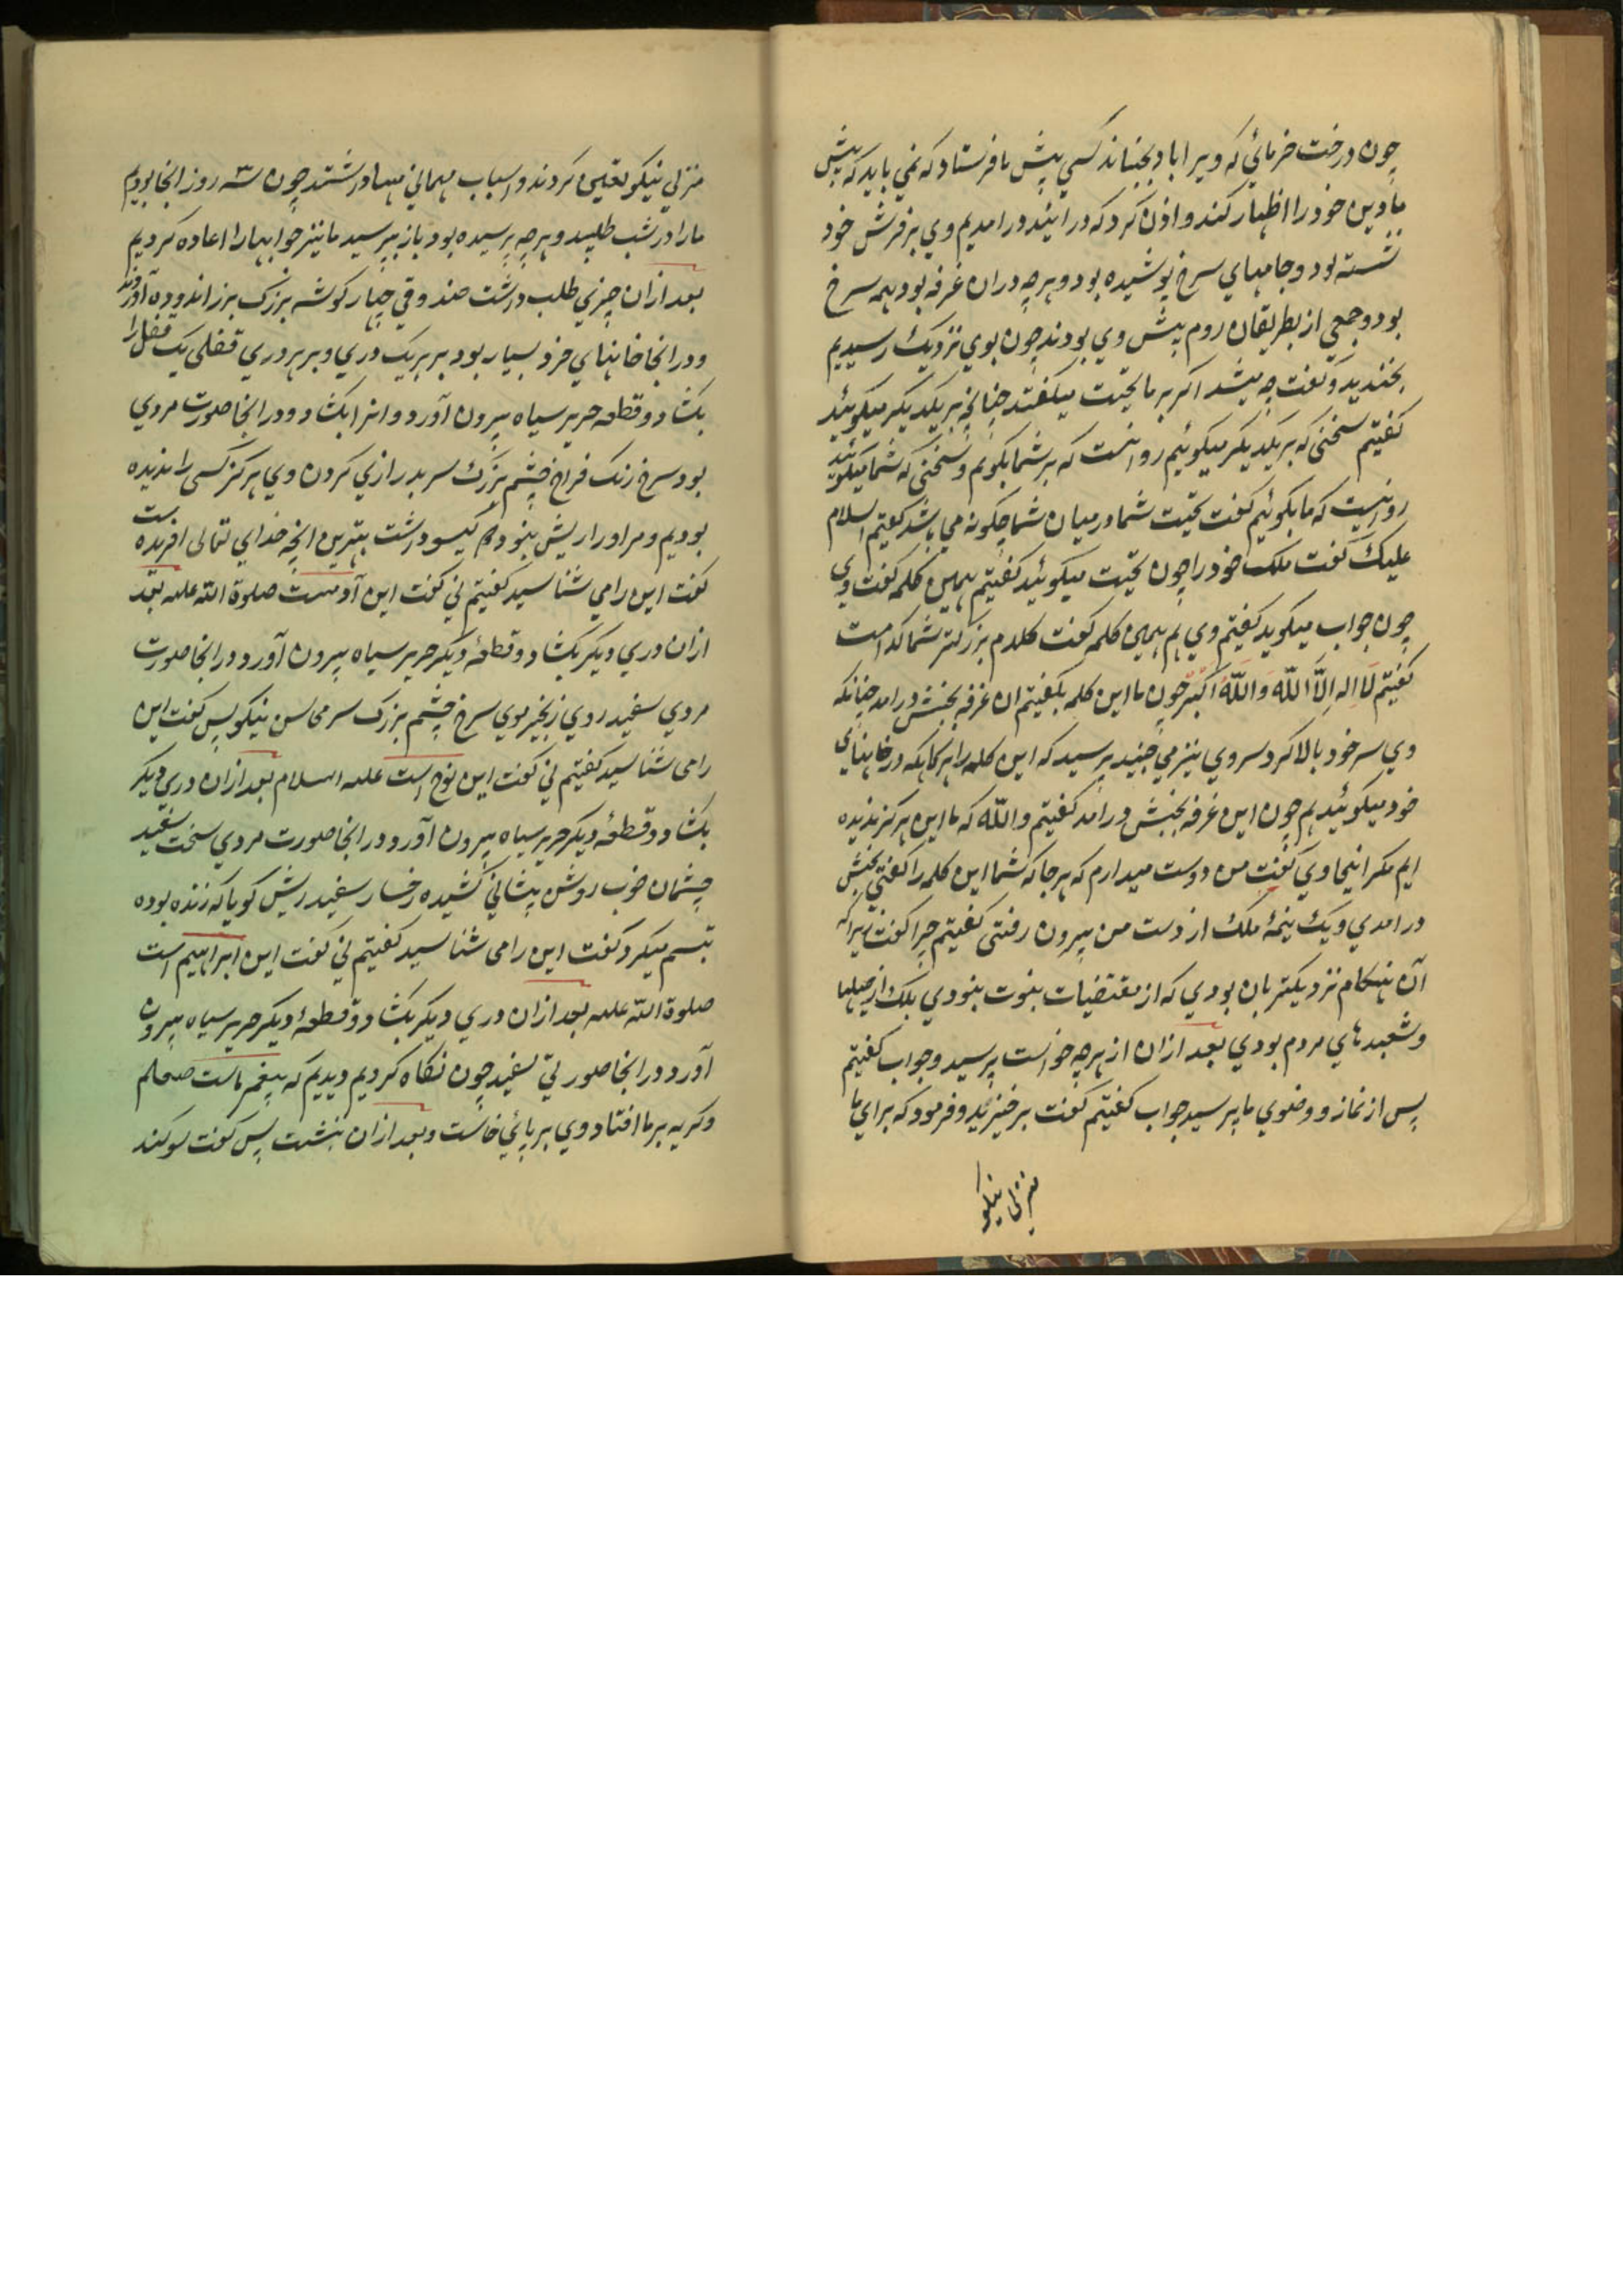 چون درخت خرمائي كه ويرا باد بجنباند كسي پيش ما فرستاد كه نمي بايد كه پيش
ما دين خود را اظهار كنند و اذن كرد كه در ايند در امديم وي بر فرش خود
نشسته بود و جامهاي سرخ پوشيده بود و هر چه دران غرفه بود همه سرخ
بود و جمعي از بطريقان روم پيش وي بودند چون بوي نزديك رسيديم
بخنديد و گفت چه ميشد اگر بر ما تحيت ميگفتند چنانچه بر يكديگر ميگوئيد
گفتيم سخني كه بر يكديگر ميگوئيم روا نيست كه بر شما بگوئم و سخني كه شما ميگوئيد
روا نيست كه ما بگوئيم گفت تحيت شما در ميان شما چگونه مي باشد گفتيم السلام
عليك گفت ملك خود را چون تحيت ميگوئيد گفتيم بهمين كلمه گفت وي
چون جواب ميگويد گفتيم وي هم بهمين كلمه گفت كلام بزرگتر شما كدامست
گفتيم لَا اله اِلَّا اللّه وَاللّهُ اكبر چون ما اين كلمه بگفتيم ان غرفه بجنبش در امد چنانكه
وي سر خود بالا كرد سر وي نيز مي جنبيد پرسيد كه اين كلمه را هر گاه كه در خانهاي
خود ميگوئيد هم چون اين غرفه بجنبش در آمد گفتيم واللّه كه ما اين هرگز نديده
ايم مگر اينجا وي گفت من دوست ميدارم كه هر جا كه شما اين كلمه را گفتي بجنبش
در امدي و يك نيمهٔ ملك از دست من بيرون رفتي گفتيم چرا گفت زيرا كه
آن هنگام نزديكتر بان بودي كه از مقتضيات نبوت نبودي بلكه از حيلها
و شعبدهاي مردم بودي بعد ازان از هر چه خواست پرسيد و جواب گفتيم
پس از نماز و وضوي ما پرسيد جواب گفتيم گفت برخيزيد و فرمود كه براي ما
منزلي نيكو
منزلي نيكو تعيين كردند و اسباب مهماني مهيا داشتند چون سه روز انجا بوديم
ما را در شب طلبيد و هر چه پرسيده بود باز پرسيد ما نيز جوابها را اعاده كرديم
بعد ازان چيزي طلب داشت صندوقي چهار گوشه بزرگ بزر اندوده آوردند
و در انجا خانهاي خرد بسيار بود بر هر يك دري و بر هر دري قفلي يك قفل را
بكشاد و قطعه حرير سياه بيرون آورد و انرا بكشاد و در انجا صورت مردي
بود سرخ رنگ فراخ چشم بزرگ سر بدرازي گردن وي هرگز كسي را نديده
بوديم و مر او را ريش نبود و گيسو داشت بهترين انچه خداي تعالى افريده است
گفت اين را مي شناسيد گفتيم ني گفت اين آدمست صلوة اللّه عليه بعد
ازان دري ديگر بكشاد و قطعهٔ ديگر حرير سياه بيرون آورد و در انجا صورت
مردي سفيد روي زنجير موي سرخ چشم بزرگ سر محاسن نيكو پس گفت اين
را مي شناسيد گفتيم ني گفت اين نوح است عليه السلام بعد ازان دري ديگر
بكشاد و قطعهٔ ديگر حرير سياه بيرون آورد و در انجا صورت مردي سخت سفيد
چشمان خوب روشن پيشاني كشيده رخسار سفيد ريش گويا كه زنده بوده
تبسم ميكرد گفت اين را مي شناسيد گفتيم ني گفت اين ابراهيم است
صلوة اللّه عليه بعد ازان دري ديگر بكشاد و قطعهٔ ديگر حرير سياه بيرون
آورد و در انجا صورتي سفيد چون نگاه كرديم ديديم كه پيغمبر ماست صلعم
و گريه بر ما افتاد وي بر پائي خاست و بعد ازان بنشست پس گفت سوگند